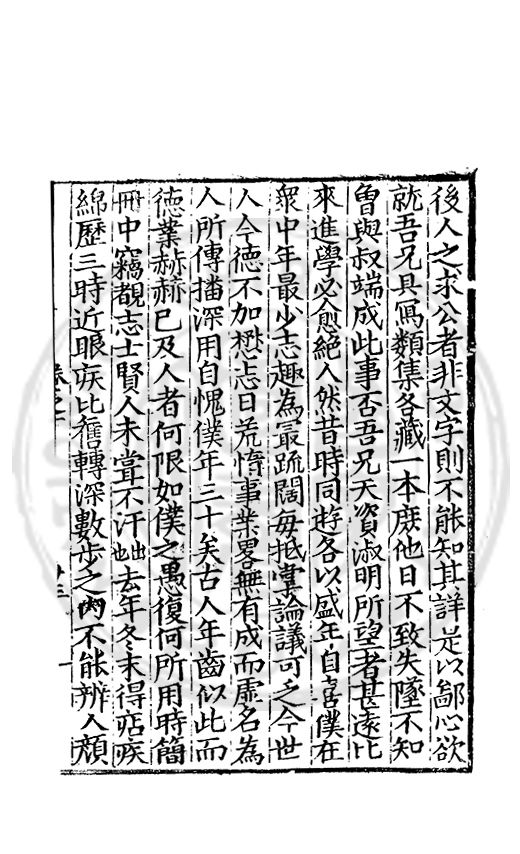 後人之求公者非文字則不能知其詳是以鄙心欲
就吾兄具寫類集各藏一本庶他日不致失墜不知
曾與叔端成此事否吾兄天資淑明所望者甚遠比
來進學必愈絕人然昔時同遊各以盛年自喜僕在
衆中年最少志趣為最疏闊每抵掌論議可乏今世
人今德不加懋志日荒惰事業畧無有成而虛名為
人所傳播深用自愧僕年三十矣古人年齒似此而
徳業赫赫已及人者何限如僕之愚復何所用時簡
冊中竊覩志士賢人未嘗不汗出也去年冬末得痁疾
綿歷三時近眼疾比舊轉深數步之內不能辨人顏